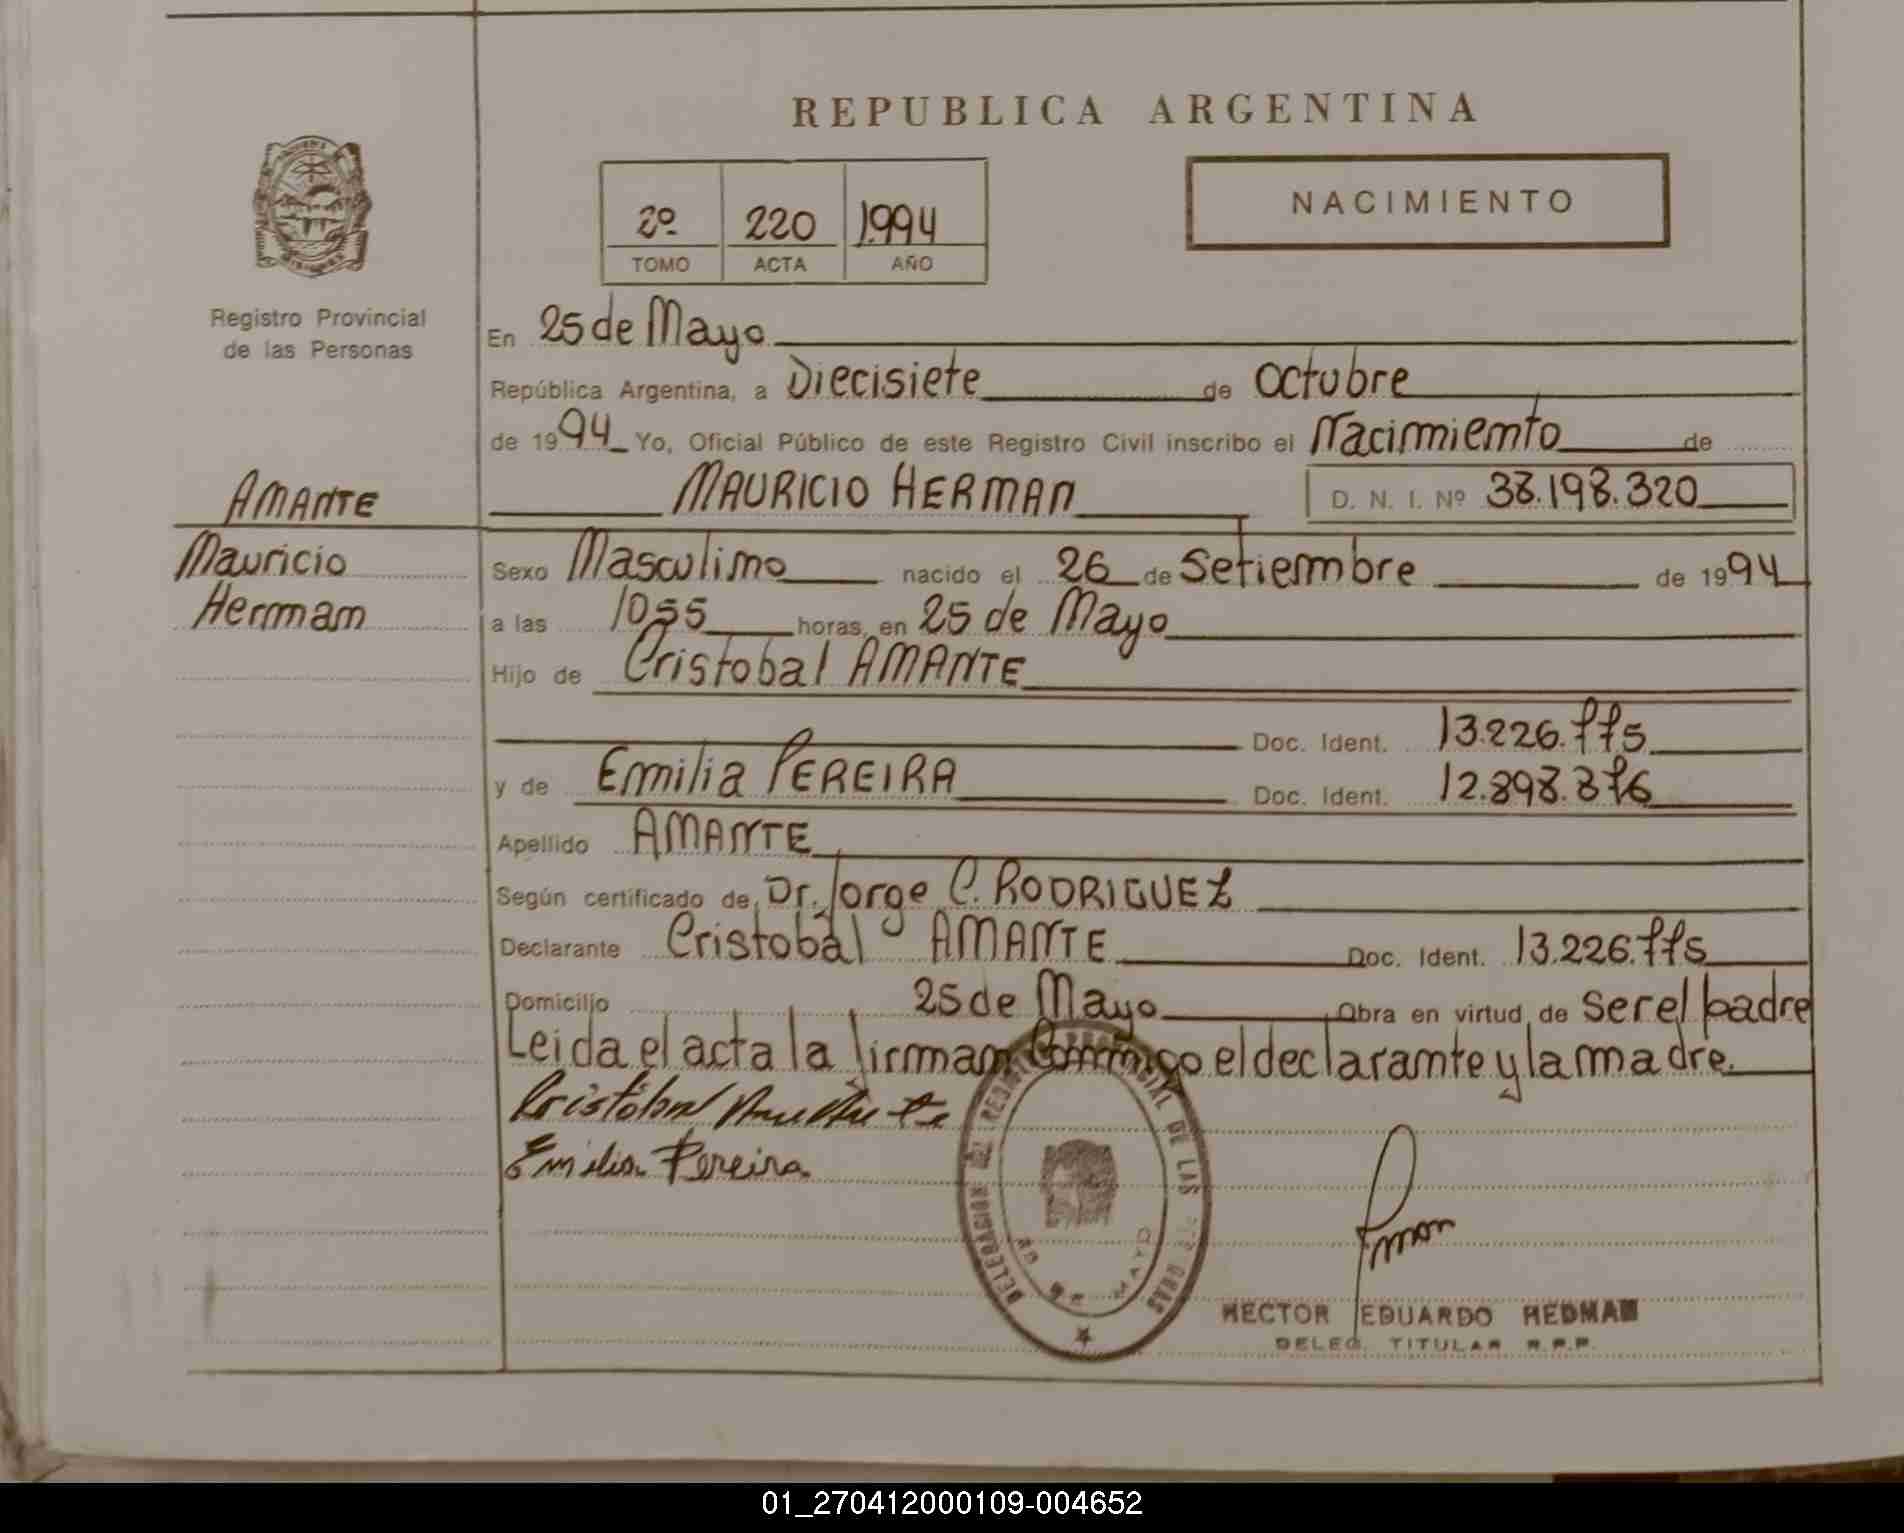 REPUBLICA ARGENTINA
2º 220 1994
TOMO ACTA AÑO
NACIMIENTO
Registro Provincial
de las Personas
AMANTE
Mauricio
Herman
En 25 de Mayo
República Argentina, a Diecisiete de Octubre
de 1994 Yo, Oficial Público de este Registro Civil inscribo el Nacimiento de
MAURICIO HERMAN D. N. I. Nº 38.198.320
Sexo Masculino nacido el 26 de Setiembre de 1994
a las 1055 horas, en 25 de Mayo
Hijo de Cristobal AMANTE
Doc. Ident. 13.226.775
y de Emilia PEREIRA Doc. Ident. 12.898.876
Apellido AMANTE
Según certificado de Dr. Jorge C. RODRIGUEZ
Declarante Cristobal AMANTE Doc. Ident. 13.226.775
Domicilio 25 de Mayo Obra en virtud de ser el padre
Leida el acta la firman Conmigo el declarante y la madre.
Cristobal Amante
Emilia Pereira
DELEGACION DEL REGISTRO PROVINCIAL DE LAS PERSONAS
25 DE MAYO
HECTOR EDUARDO HEDMAN
DELEG. TITULAR R.P.P.
01_270412000109-004652